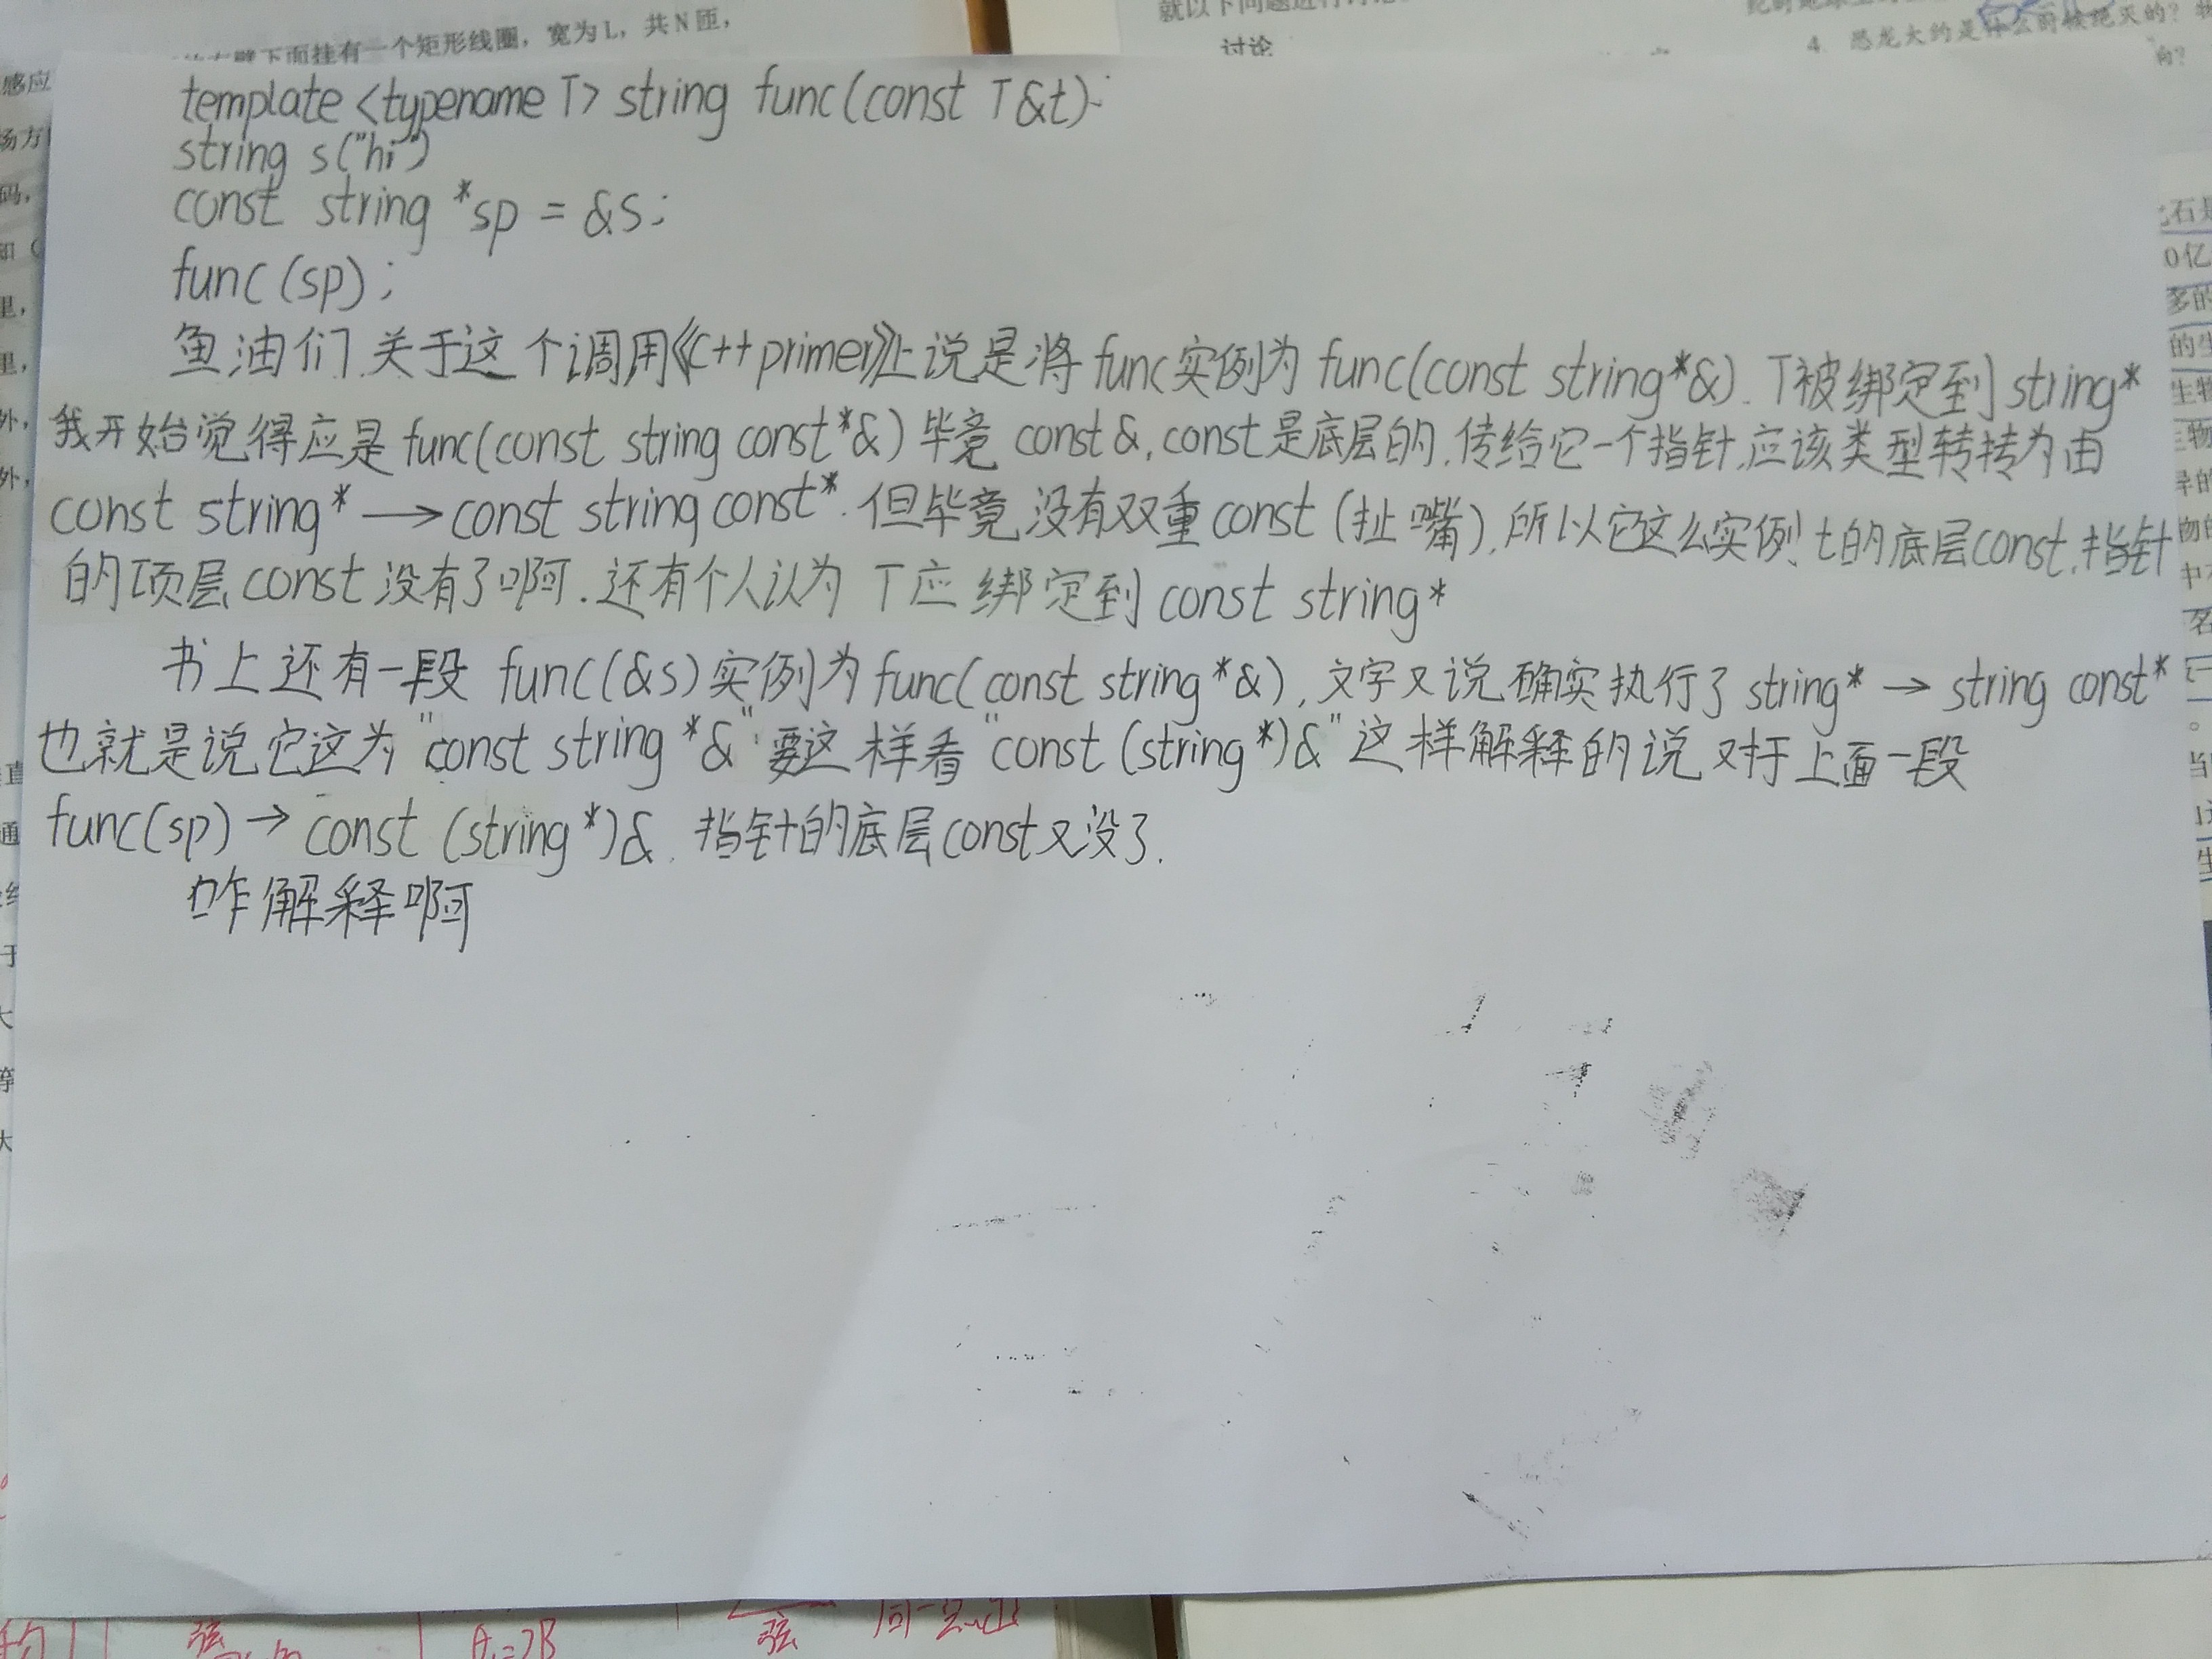 感应
场方
码,
知(
里,
里,
外,
外,
直
通
于
大
等
大
下面挂有一个矩形线圈, 宽为L, 共N匝,
就以下问题进行讨
讨论
4. 恐龙大约是什么时候绝灭的?
template <typename T> string func(const T&t);
string s("hi")
const string *sp = &s;
func(sp);
鱼油们.关于这个调用《C++primer》上说是将func实例为func(const string*&).T被绑定到string*
我开始觉得应是func(const string const*&)毕竟const&,const是底层的.传给它一个指针.应该类型转转为由
const string* → const string const*.但毕竟没有双重const(扯嘴),所以它这么实例!t的底层const.指针
的顶层const没有了啊.还有个人认为T应绑定到const string*
书上还有一段func(&s)实例为func(const string*&),文字又说确实执行了string* → string const*
也就是说它这为"const string*&"要这样看"const (string*)&"这样解释的说对于上面一段
func(sp)→ const (string*)&.指针的底层const又没了.
咋解释啊
石是
0亿
多的
的生
生物
名
当
生
弦
A=2B
弦